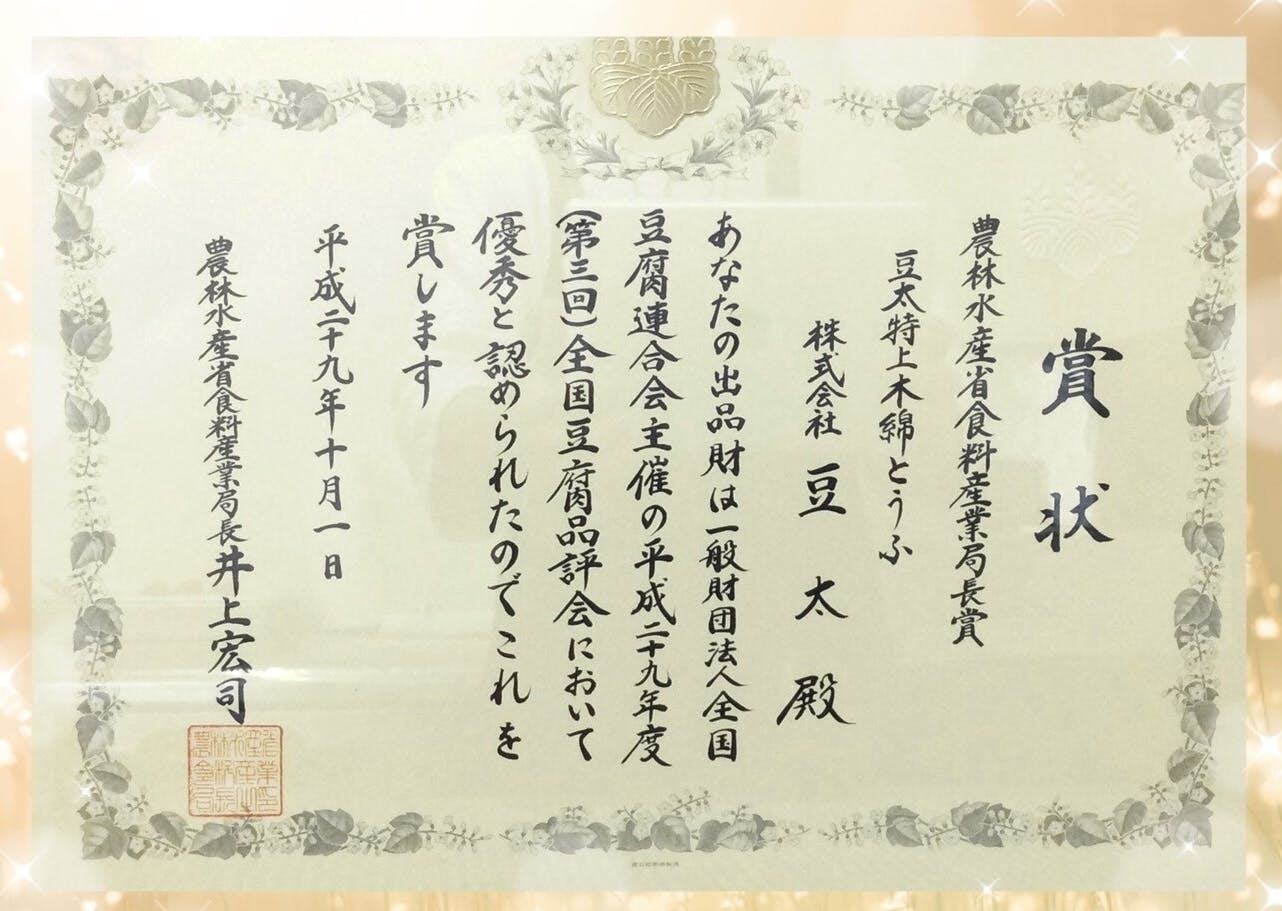 賞状
農林水産省食料産業局長賞
豆太特上木綿とうふ
株式会社 豆太 殿
あなたの出品財は一般財団法人全国
豆腐連合会主催の平成二十九年度
(第三回)全国豆腐品評会において
優秀と認められたのでこれを
賞します
平成二十九年十月一日
農林水産省食料産業局長 井上宏司